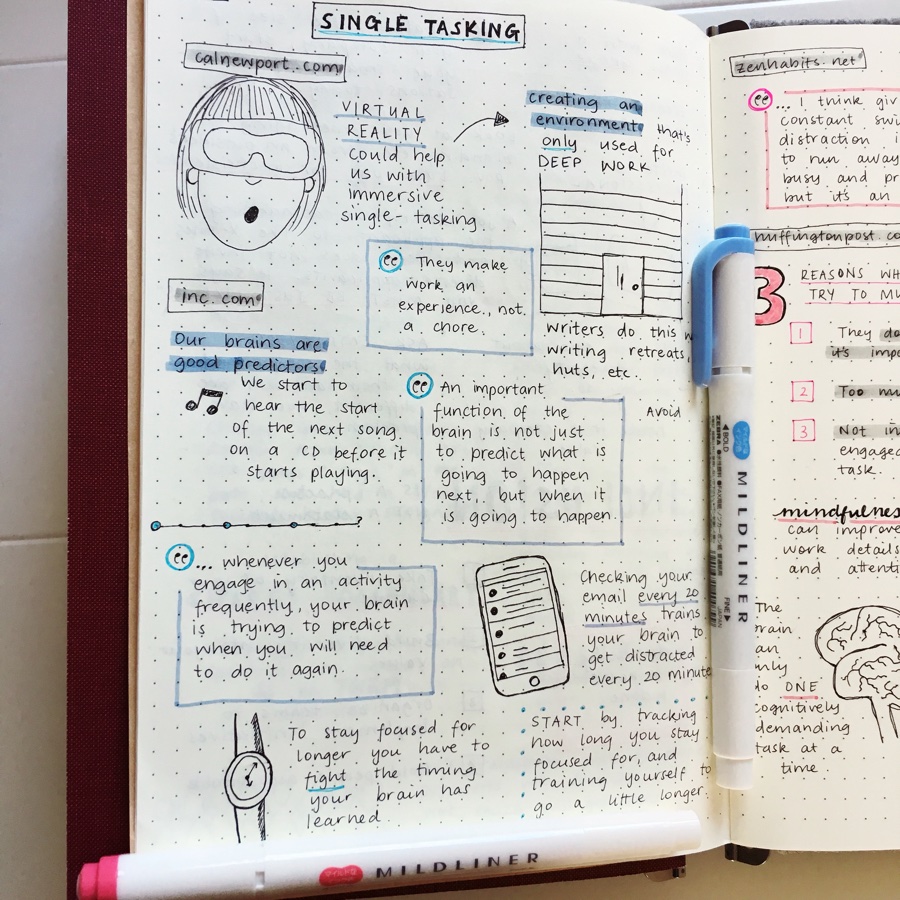 SINGLE TASKING
calnewport.com
VIRTUAL
REALITY
could help
us with
immersive
single-tasking.
creating an
environment that's
only used for
DEEP WORK
They make
work an
experience, not
a chore.
writers do this
writing retreats,
huts, etc.
inc.com
Our brains are
good predictors.
We start to
hear the start
of the next song
on a CD before it
starts playing.
An important
function of the
brain is not just
to predict what is
going to happen
next, but when it
is going to happen.
Avoid
?
... whenever you
engage in an activity
frequently, your brain
is trying to predict
when you will need
to do it again.
Checking your
email every 20
minutes trains
your brain to
get distracted
every 20 minute
To stay focused for
longer you have to
fight the timing
your brain has
learned.
START by tracking
how long you stay
focused for, and
training yourself to
go a little longer.
zenhabits.net
... I think
constant
distraction
to run away
busy and
but it's an
huffingtonpost.co
3 REASONS
TRY TO
1 They
it's
2 Too
3 Not
engaged
task.
mindfulness
can improve
work details
and
The
brain
can
only
do ONE
cognitively
demanding
task at a
time.
ZEBRA
BOLD
MILDLINER
FINE
JAPAN
MILDLINER